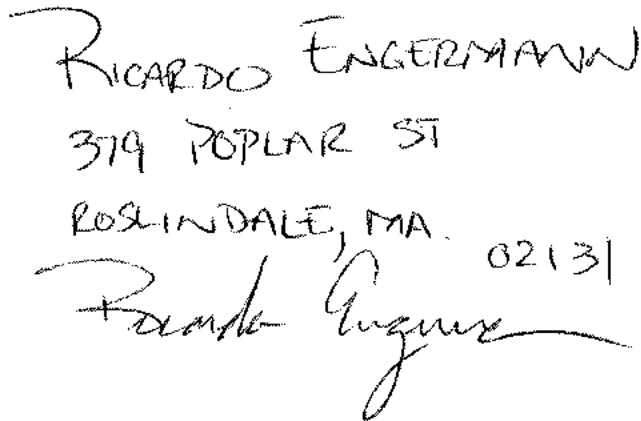 RICARDO ENGERMANN
379 POPLAR ST
ROSLINDALE, MA. 02131
Ricardo Engermann